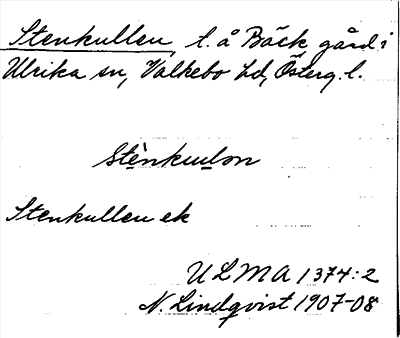 Stenkullen, t. å Bäck gård i
Ulrika sn, Valkebo hd, Österg. l.
stènkulon
Stenkullen ek
ULMA 1374:2
N. Lindqvist 1907-08